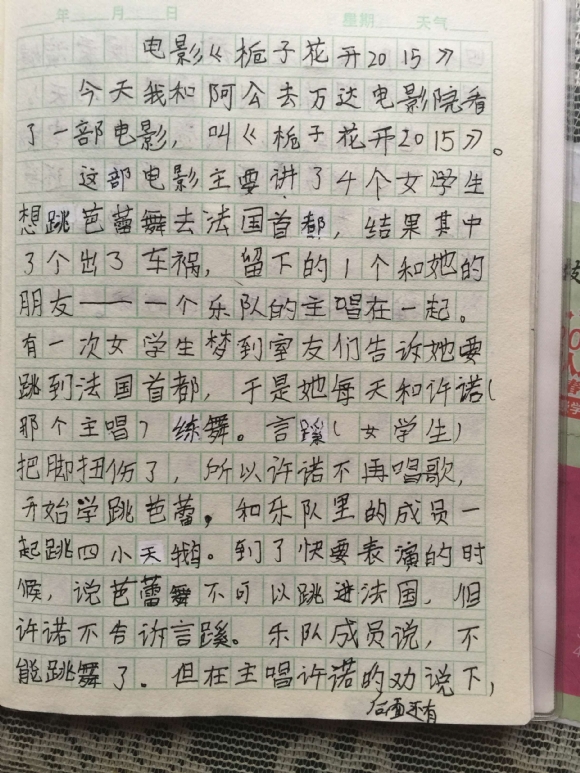 年 月 日 星期 天气
电影《栀子花开2015》
今天我和阿公去万达电影院看
了一部电影，叫《栀子花开2015》。
这部电影主要讲了4个女学生
想跳芭蕾舞去法国首都，结果其中
3个出了车祸，留下的1个和她的
朋友——一个乐队的主唱在一起。
有一次女学生梦到室友们告诉她要
跳到法国首都，于是她每天和许诺（
那个主唱）练舞。言蹊（女学生）
把脚扭伤了，所以许诺不再唱歌，
开始学跳芭蕾，和乐队里的成员一
起跳四小天鹅。到了快要表演的时
候，说芭蕾舞不可以跳进法国，但
许诺不告诉言蹊。乐队成员说，不
能跳舞了。但在主唱许诺的劝说下，
后面还有